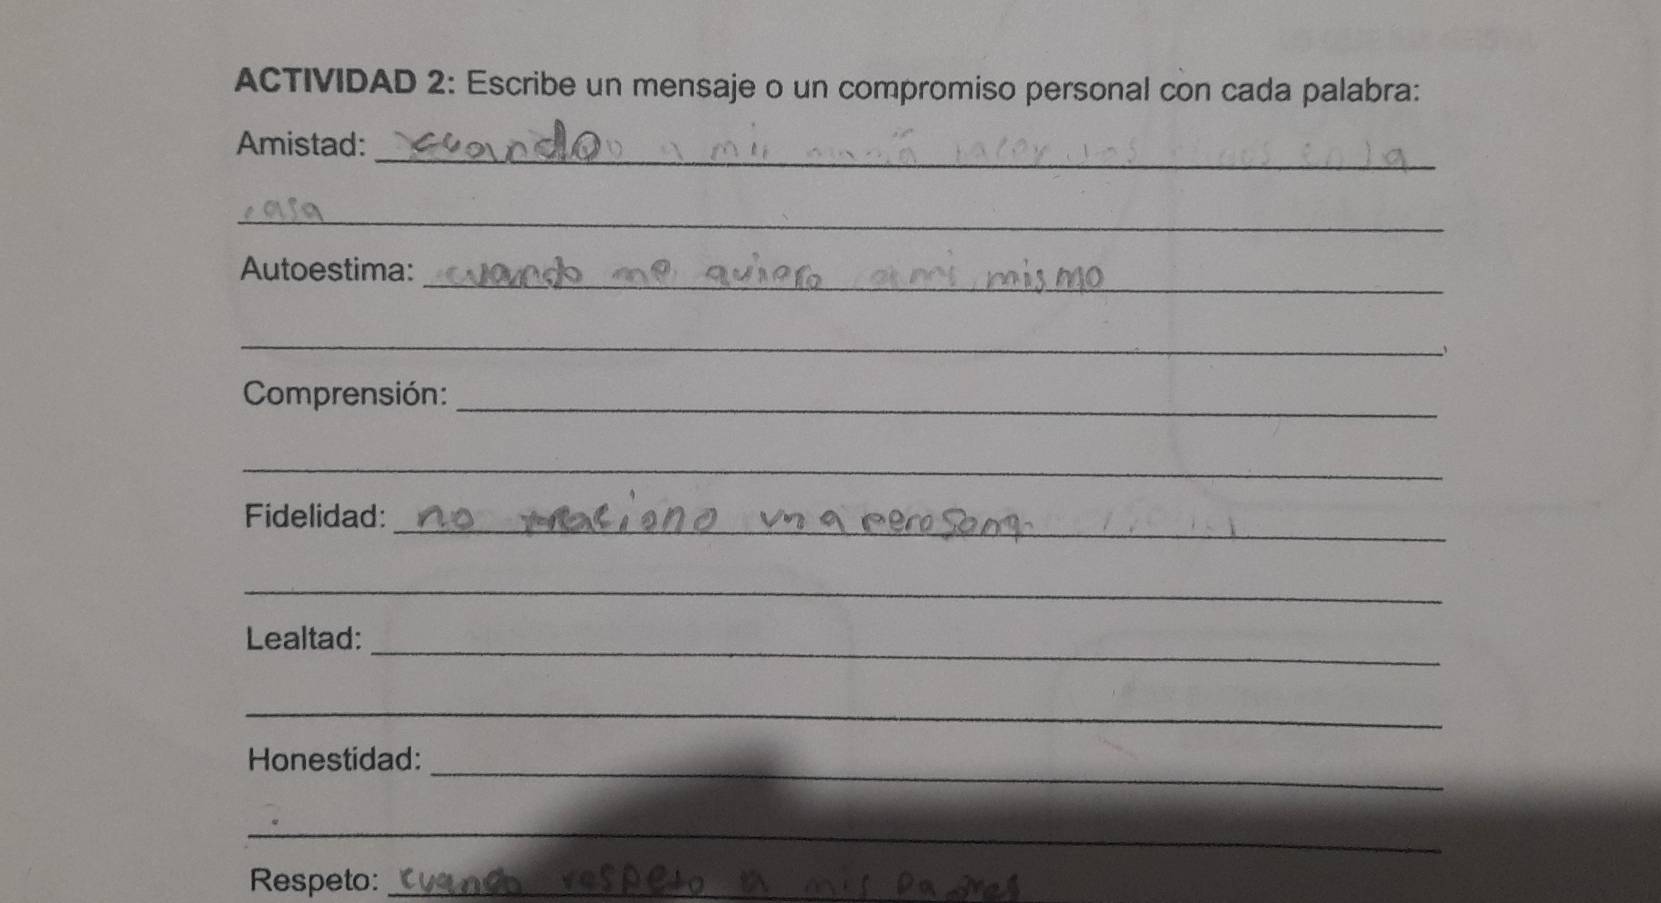 ACTIVIDAD 2: Escribe un mensaje o un compromiso personal con cada palabra:
Amistad: cuando a mi mamá hacer los en la
casa
Autoestima: cuando me quiero a mi mismo
Comprensión:
Fidelidad: no una
Lealtad:
Honestidad:
Respeto: cuando respeto a mis padres